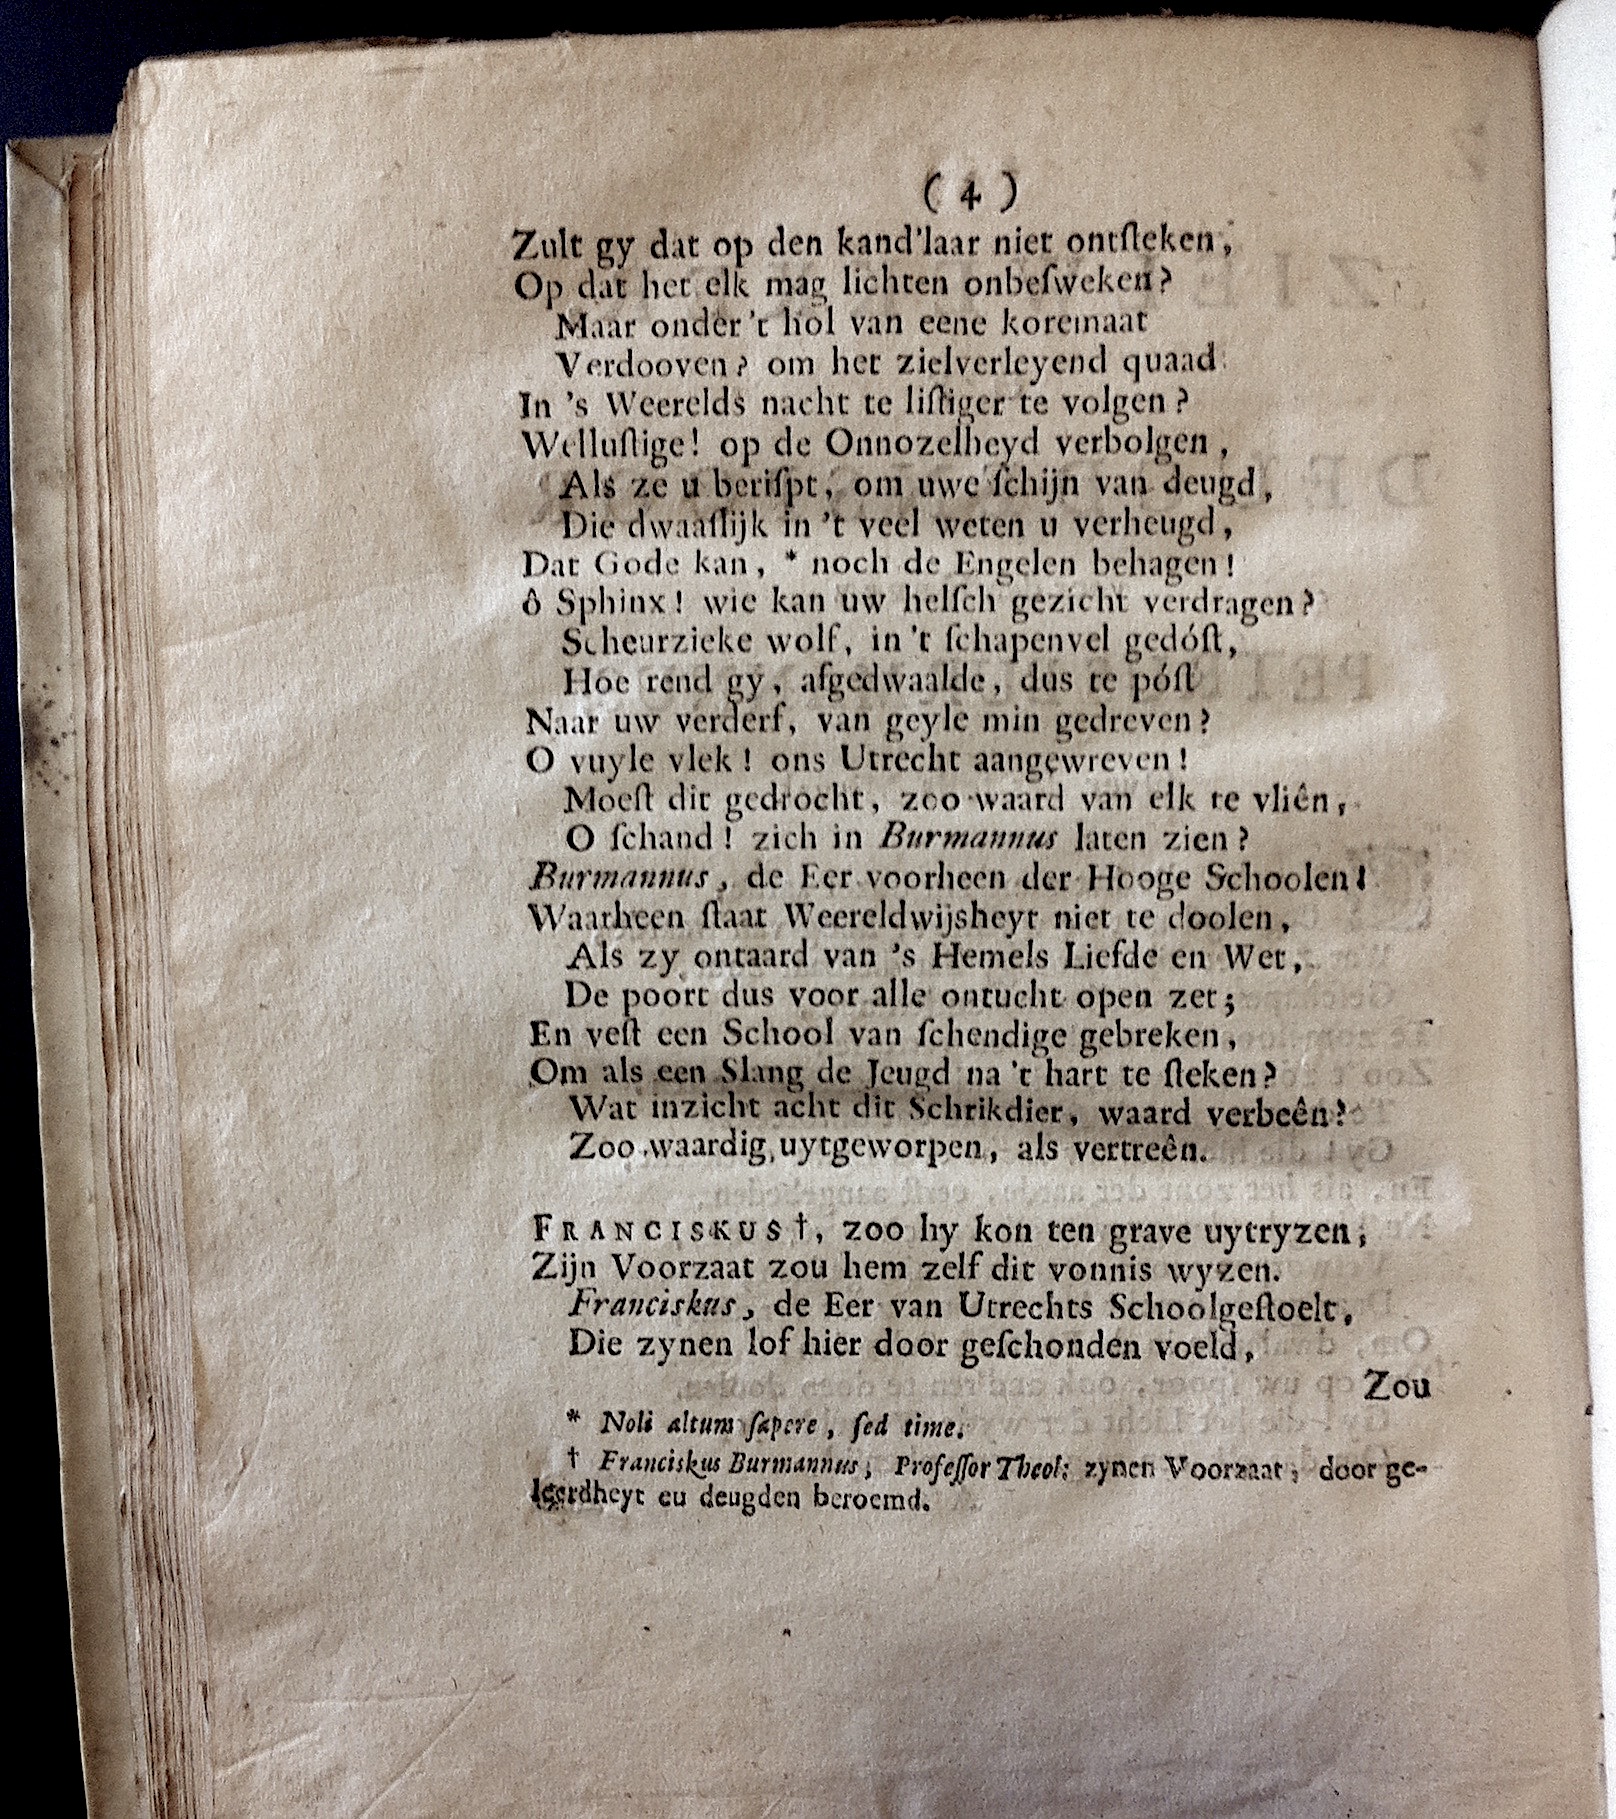 ( 4 )
Zult gy dat op den kand'laar niet ontſteken,
Op dat het elk mag lichten onbeſweken?
Maar onder 't hol van eene koremaat
Verdooven? om het zielverleyend quaad
In 's Weerelds nacht te liſtiger te volgen?
Welluſtige! op de Onnozelheyd verbolgen,
Als ze u beriſpt, om uwe ſchijn van deugd,
Die dwaaſlijk in 't veel weten u verheugd,
Dat Gode kan, * noch de Engelen behagen!
ô Sphinx! wie kan uw helſch gezicht verdragen?
Scheurzieke wolf, in 't ſchapenvel gedóſt,
Hoe rend gy, afgedwaalde, dus te póſt
Naar uw verderf, van geyle min gedreven?
O vuyle vlek! ons Utrecht aangewreven!
Moeſt dit gedrocht, zoo waard van elk te vliên,
O ſchand! zich in Burmannus laten zien?
Burmannus, de Eer voorheen der Hooge Schoolen!
Waarheen ſtaat Weereldwijsheyt niet te doolen,
Als zy ontaard van 's Hemels Liefde en Wet,
De poort dus voor alle ontucht open zet;
En veſt een School van ſchendige gebreken,
Om als een Slang de Jeugd na 't hart te ſteken?
Wat inzicht acht dit Schrikdier, waard verbeên?
Zoo waardig uytgeworpen, als vertreên.
FRANCISKUS†, zoo hy kon ten grave uytryzen,
Zijn Voorzaat zou hem zelf dit vonnis wyzen.
Franciskus, de Eer van Utrechts Schoolgeſtoelt,
Die zynen lof hier door geſchonden voeld,
Zou
* Noli altum ſapere, ſed time.
† Franciskus Burmannus, Profeſſor Theol: zynen Voorzaat, door ge-
leerdheyt eu deugden beroemd.